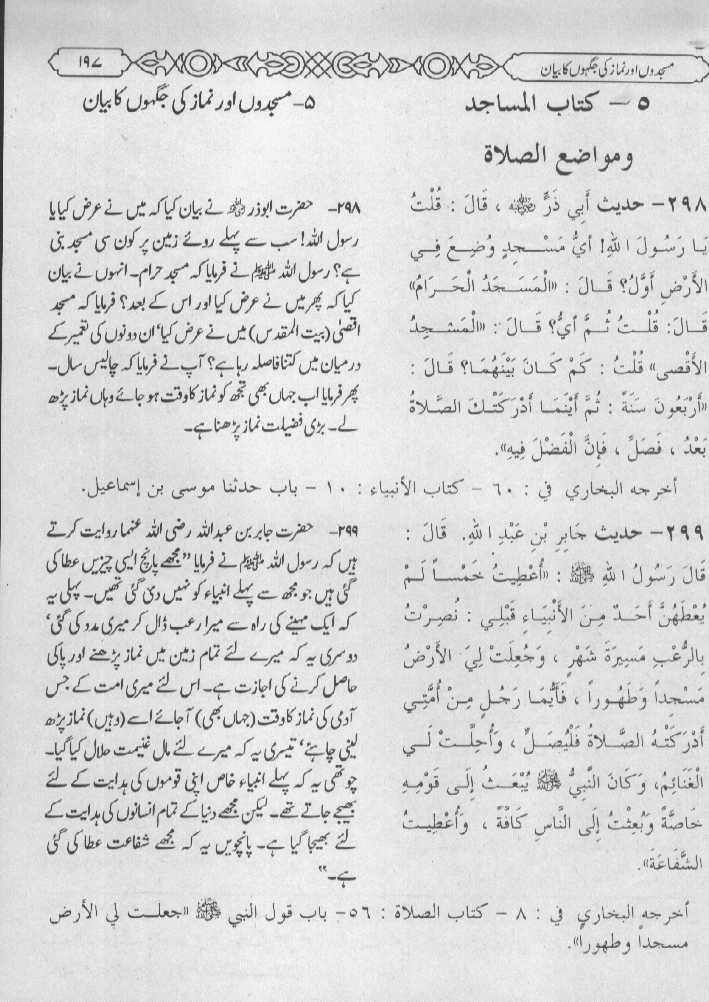 مسجدوں اور نماز کی جگہوں کا بیان
۱۹۷
٥ – كتاب المساجد
ومواضع الصلاة
۲۹۸– حديث أَبِي ذَرٍّ ﷺ ، قَالَ : قُلْتُ
يَا رَسُولَ اللهِ! أيُّ مَسْجِدٍ وُضِعَ فِي
الأَرْضِ أَوَّلُ؟ قَالَ : «الْمَسْجَدُ الْحَرَامُ»
قَالَ: قُلْتُ ثُمَّ أيُّ؟ قَالَ : «الْمَسْجِدُ
الأَقْصى» قُلْتُ : كَمْ كَانَ بَيْنَهُمَا؟ قَالَ :
«أَرْبَعُونَ سَنَةً : ثُمَّ أَيْنَمَا أَدْرَكَتْكَ الصَّلاةُ
بَعْدُ ، فَصَلِّ ، فَإِنَّ الْفَضْلَ فِيهِ».
۵– مسجدوں اور نماز کی جگہوں کا بیان
۲۹۸– حضرت ابوذر نے بیان کیا کہ میں نے عرض کیا یا
رسول اللہ! سب سے پہلے روئے زمین پر کون سی مسجد بنی
ہے؟ رسول اللہ ﷺ نے فرمایا کہ مسجد حرام۔ انہوں نے بیان
کیا کہ پھر میں نے عرض کیا اور اس کے بعد؟ فرمایا کہ مسجد
اقصیٰ (بیت المقدس) میں نے عرض کیا، ان دونوں کی تعمیر کے
درمیان میں کتنا فاصلہ رہا ہے؟ آپ نے فرمایا کہ چالیس سال۔
پھر فرمایا اب جہاں بھی تجھ کو نماز کا وقت ہو جائے وہاں نماز پڑھ
لے۔ بڑی فضیلت نماز پڑھنا ہے۔
أخرجه البخاري في : ٦٠ – كتاب الأنبياء : ١٠ – باب حدثنا موسى بن إسماعيل.
۲۹۹– حديث جَابِرِ بْنِ عَبْدِ اللهِ. قَالَ :
قَالَ رَسُولُ اللهِ ﷺ : «أُعْطِيتُ خَمْساً لَمْ
يُعْطَهُنَّ أَحَدٌ مِنَ الأَنْبِيَاءِ قَبْلِي : نُصِرْتُ
بِالرُّعْبِ مَسِيرَةَ شَهْرٍ ، وَجُعِلَتْ لِيَ الأَرْضُ
مَسْجِداً وَطَهُوراً ، فَأَيُّمَا رَجُلٍ مِنْ أُمَّتِي
أَدْرَكَتْهُ الصَّلاةُ فَلْيُصَلِّ ، وَأُحِلَّتْ لَي
الْغَنَائِمُ، وَكَانَ النَّبِيُّ ﷺ يُبْعَثُ إِلَى قَوْمِهِ
خَاصَّةً وَبُعِثْتُ إِلَى النَّاسِ كَافَّةً ، وَأُعْطِيتُ
الشَّفَاعَةَ».
۲۹۹– حضرت جابر بن عبداللہ رضی اللہ عنہما روایت کرتے
ہیں کہ رسول اللہ ﷺ نے فرمایا ”مجھے پانچ ایسی چیزیں عطا کی
گئی ہیں جو مجھ سے پہلے انبیاء کو نہیں دی گئی تھیں۔ پہلی یہ
کہ ایک مہینے کی راہ سے میرا رعب ڈال کر میری مدد کی گئی،
دوسری یہ کہ میرے لئے تمام زمین میں نماز پڑھنے اور پاکی
حاصل کرنے کی اجازت ہے۔ اس لئے میری امت کے جس
آدمی کی نماز کا وقت (جہاں بھی) آجائے اسے (وہیں) نماز پڑھ
لینی چاہئے، تیسری یہ کہ میرے لئے مال غنیمت حلال کیا گیا۔
چوتھی یہ کہ پہلے انبیاء خاص اپنی قوموں کی ہدایت کے لئے
بھیجے جاتے تھے۔ لیکن مجھے دنیا کے تمام انسانوں کی ہدایت کے
لئے بھیجا گیا ہے۔ پانچویں یہ کہ مجھے شفاعت عطا کی گئی
ہے۔“
أخرجه البخاري في : ٨ – كتاب الصلاة : ٥٦– باب قول النبي ﷺ «جعلت لي الأرض
مسجداً وطهورا».